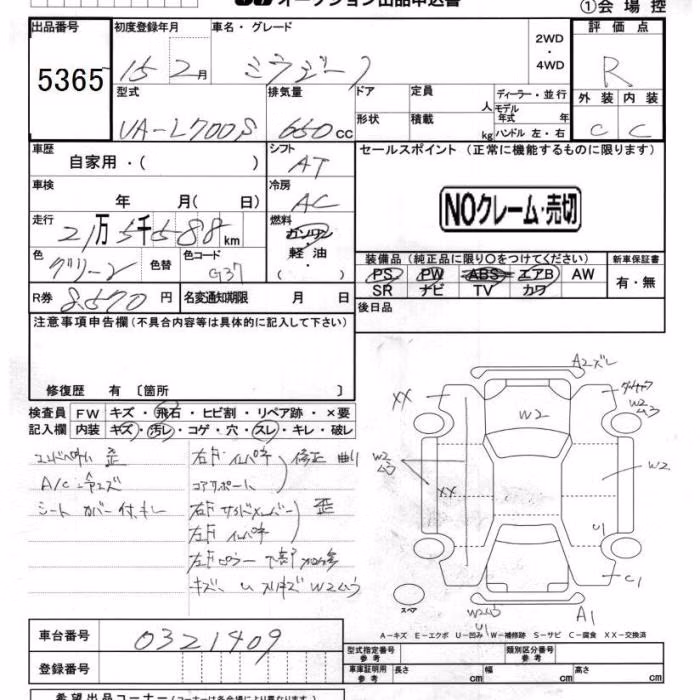 オークション出品申込書
①会場控
出品番号 初度登録年月 車名・グレード 評価点
5365 15 2月 ミラジーノ 2WD・4WD R
型式 排気量 ドア 定員 人 ディーラー・並行 外装 内装
UA-L700S 660cc 形状 積載 kg モデル年式 年 ハンドル 左・右 C C
車歴 自家用・( ) シフト AT セールスポイント (正常に機能するものに限ります)
車検 年 月( 日) 冷房 AC NOクレーム・売切
走行 2万5千588km 燃料 ガソリン 軽油 ( )
色 グリーン 色替 色コード G37 装備品 (純正品に限り○をつけてください) 新車保証書
PS PW ABS エアB AW 有・無
SR ナビ TV カワ
R券 8570円 名変通知期限 月 日 後日品
注意事項申告欄(不具合内容等は具体的に記入して下さい)
修復歴 有 〔箇所 〕
検査員 FW キズ・飛石・ヒビ割・リペア跡・×要
記入欄 内装 キズ・汚レ・コゲ・穴・スレ・キレ・破レ
歪 右F インパネ 修正 曲り
A/C コアサポート
シートカバー付 キレ 右F サイドメンバー 歪
左F インパネ
左Fピラー 下部
キズ U W2ムラ
A2ズレ
XX W2 W2ムラ
W2ムラ XX W2
U1
C1
スペア W2ムラ U1 A1
A-キズ E-エクボ U-凹み W-補修跡 S-サビ C-腐食 XX-交換済
車台番号 0321409 型式指定番号 参考 類別区分番号 参考
登録番号 車庫証明用 参考 長さ cm 幅 cm 高さ cm
希望出品コーナー(コーナーは各会場により異なります)